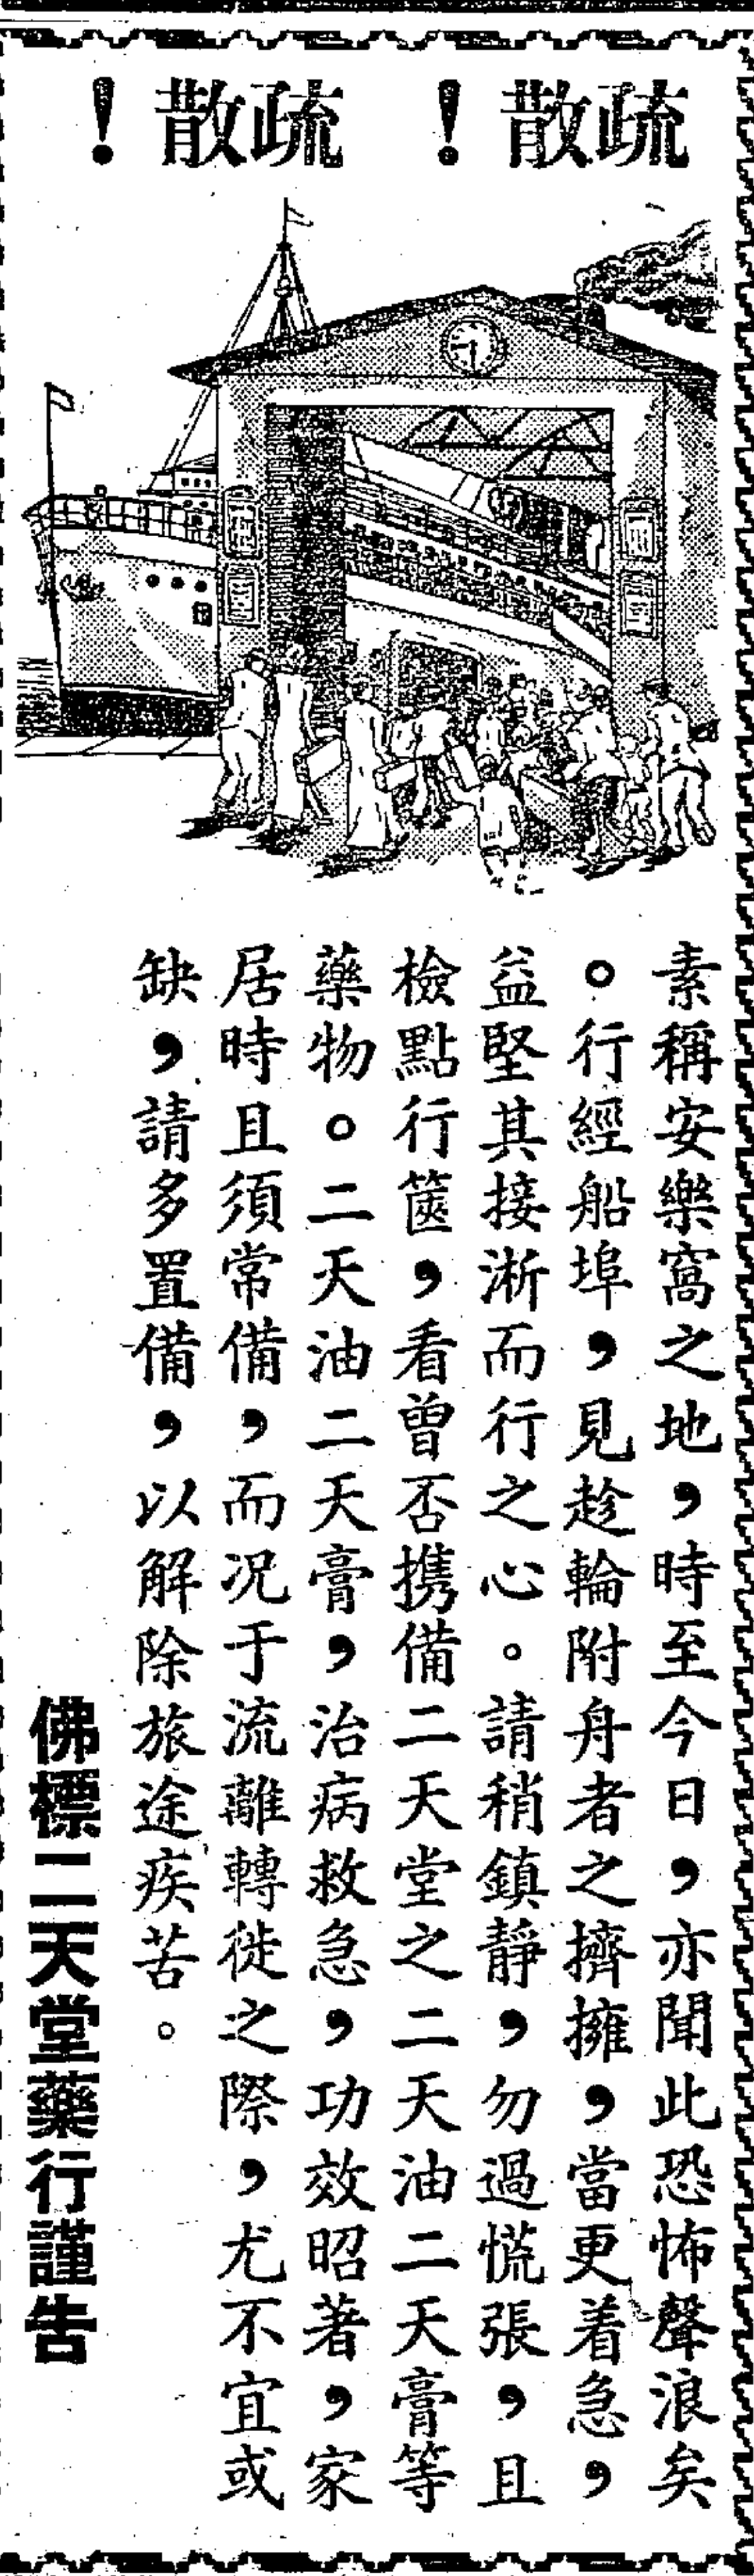 疏散！疏散！
素稱安樂窩之地，時至今日，亦聞此恐怖聲浪矣
。行經船埠，見趁輪附舟者之擠擁，當更着急，
益堅其接淅而行之心。請稍鎮靜，勿過慌張，且
檢點行篋，看曾否携備二天堂之二天油二天膏等
藥物。二天油二天膏，治病救急，功效昭著，家
居時且須常備，而况于流離轉徙之際，尤不宜或
缺，請多置備，以解除旅途疾苦。
佛標二天堂藥行謹告